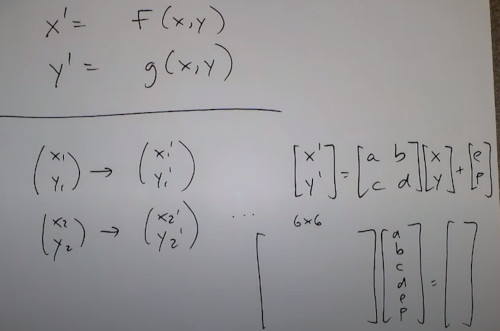 x' = F(x,y)
y' = g(x,y)
(x1 y1) → (x1' y1')
(x2 y2) → (x2' y2') ...
[x' y'] = [a b c d] [x y] + [e f]
6x6
[ ] [a b c d e f] = [ ]